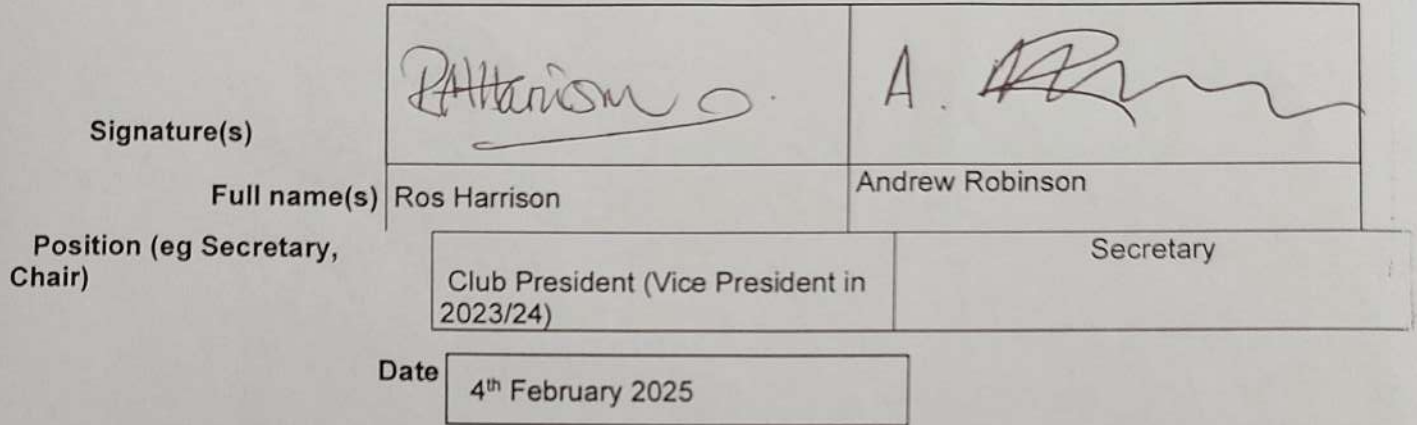 Signature(s)
RAHarrison
A.
Full name(s)
Ros Harrison
Andrew Robinson
Position (eg Secretary,
Chair)
Club President (Vice President in
2023/24)
Secretary
Date
4th February 2025